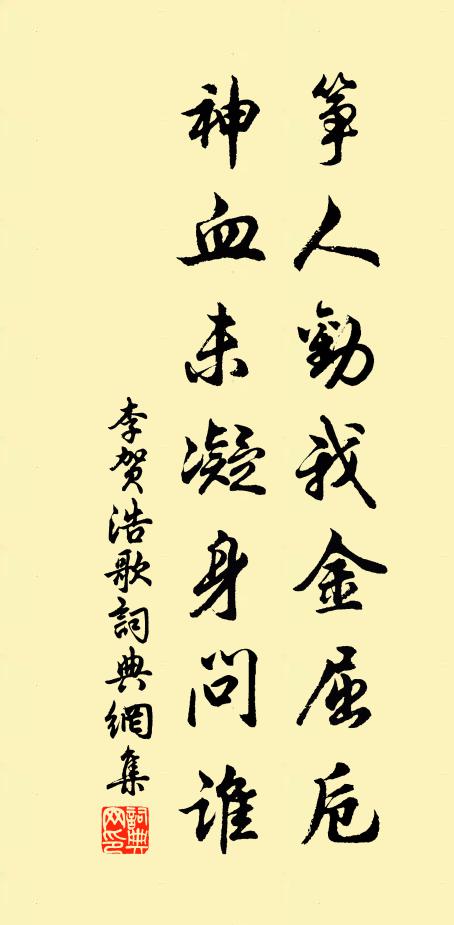 筝人勸我金屈卮
神血未凝身問谁
李贺浩歌詞典網集
詞典网印